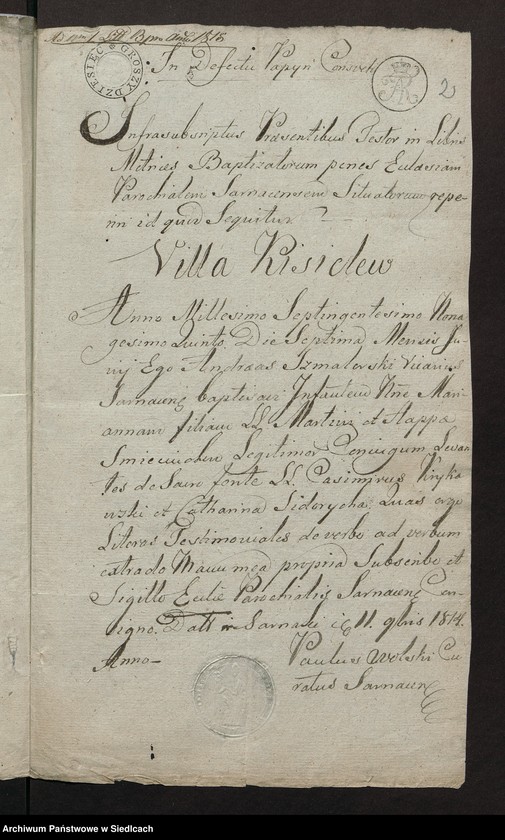 Ad Nrm 1 Litt B pro Anno 1815
DZIESIĘĆ GROSZY
In Defectu Papyri Consveti
2
Infrasubscriptus Præsentibus Testor in Libris
Metrices Baptizatorum penes Ecclesiam
Parochialem Sarnacensem Situatorum repe-
riri id quod Sequitur
Villa Kisielew
Anno Millesimo Septingentesimo Nona
gesimo Quinto. Die Septima Mensis Ju-
nij Ego Andræas Szmalewski Vicarius
Sarnacen baptisavi Infantem Nne Mari
annam filiam LL Martini et Agappæ
Legitimor Conjugum Levan
tes de Sacro fonte LL. Casimirus Krytko
wski et Catharina Sidorycha. Quas ergo
Literas Testimoniales de verbo ad verbum
extrado Manu mea propria Subscribo et
Sigillo Eccliæ Parochialis Sarnacen Con-
signo. Datt Sarnaki 11. 9bris 1814.
Anno-
Paulus Wolski Cu
ratus Sarnacen
Archiwum Państwowe w Siedlcach